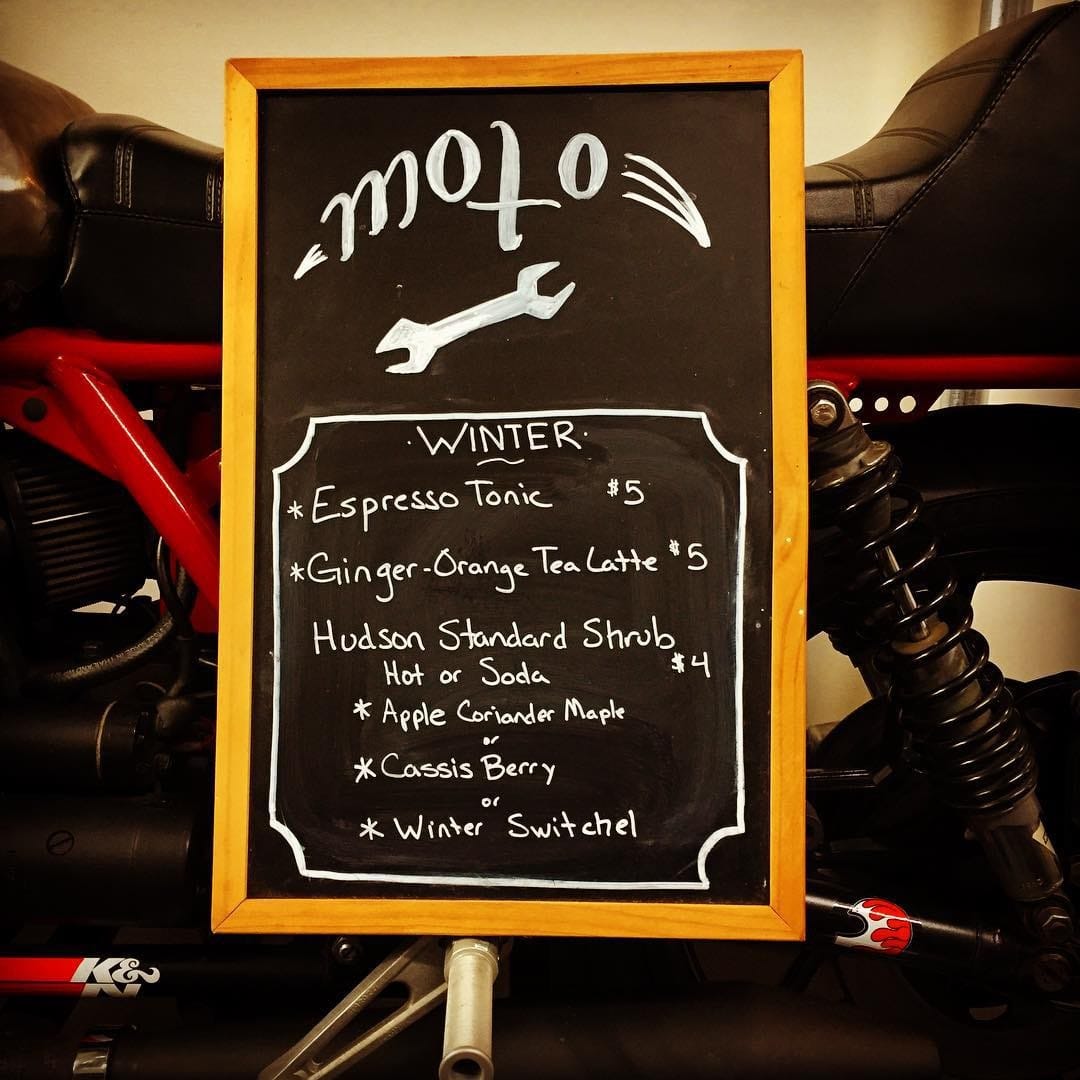 moto
·WINTER·
* Espresso Tonic $5
* Ginger-Orange Tea Latte $5
Hudson Standard Shrub
Hot or Soda $4
* Apple Coriander Maple
or
* Cassis Berry
or
* Winter Switchel
K&N